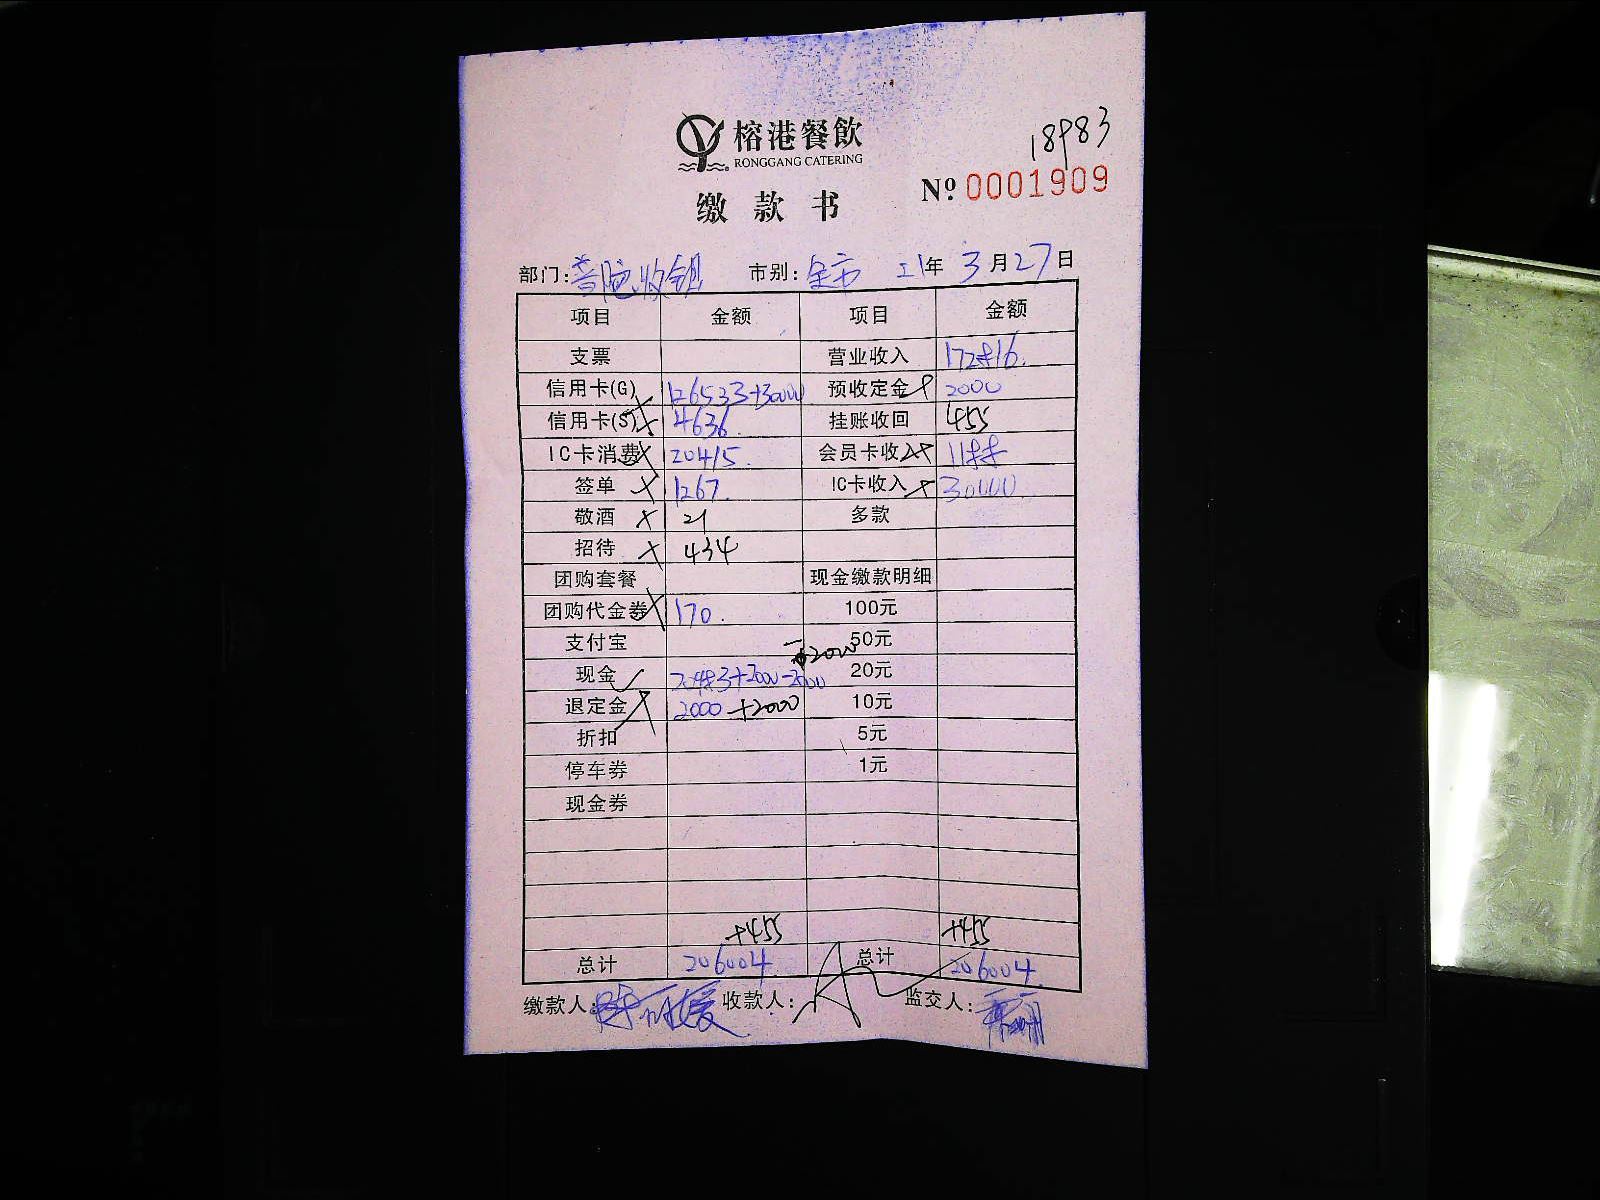 榕港餐飲
RONGGANG CATERING
18983
缴款书
№ 0001909
部门: 市别: 全市 21年 3月27日
项目 金额 项目 金额
支票 营业收入
信用卡(G) 126533+30000 预收定金 2000
信用卡(S) 4636. 挂账收回 455
IC卡消费 20415. 会员卡收入
签单 1267. IC卡收入 30000
敬酒 21 多款
招待 434
团购套餐 现金缴款明细
团购代金券 170. 100元
支付宝 50元
现金 20元
退定金 2000 +2000 10元
折扣 5元
停车券 1元
现金券
+455 +455
总计 206004. 总计 206004.
缴款人: 收款人: 监交人: